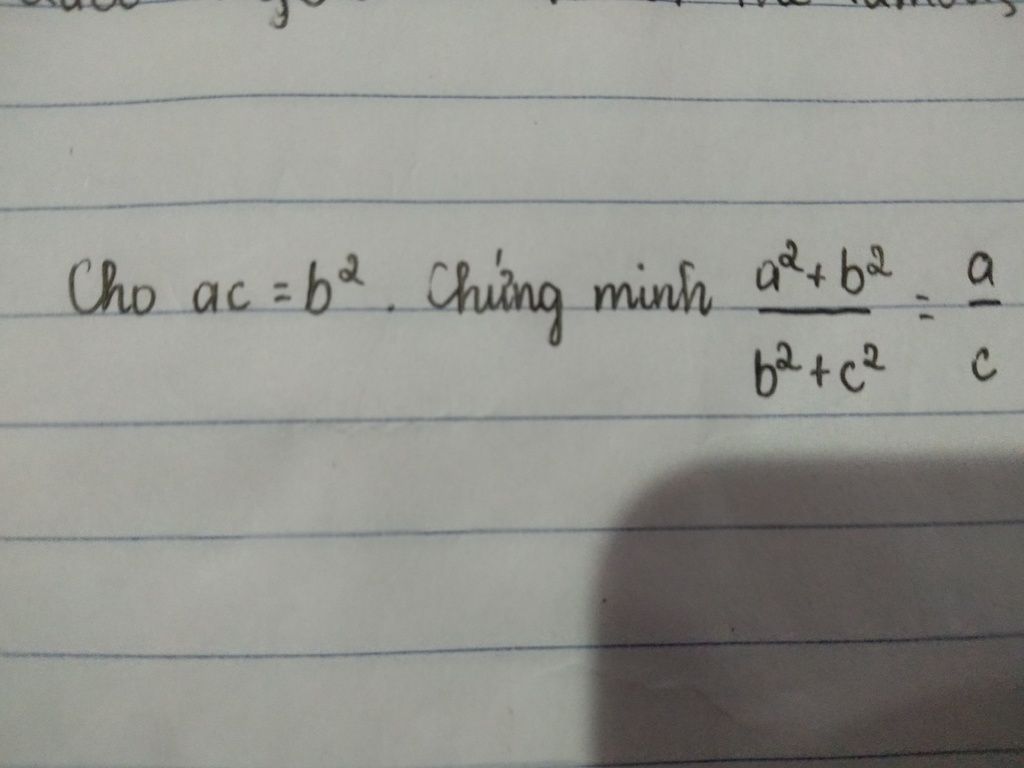 Cho ac = b². Chứng minh \frac{a²+b²}{b²+c²} = \frac{a}{c}